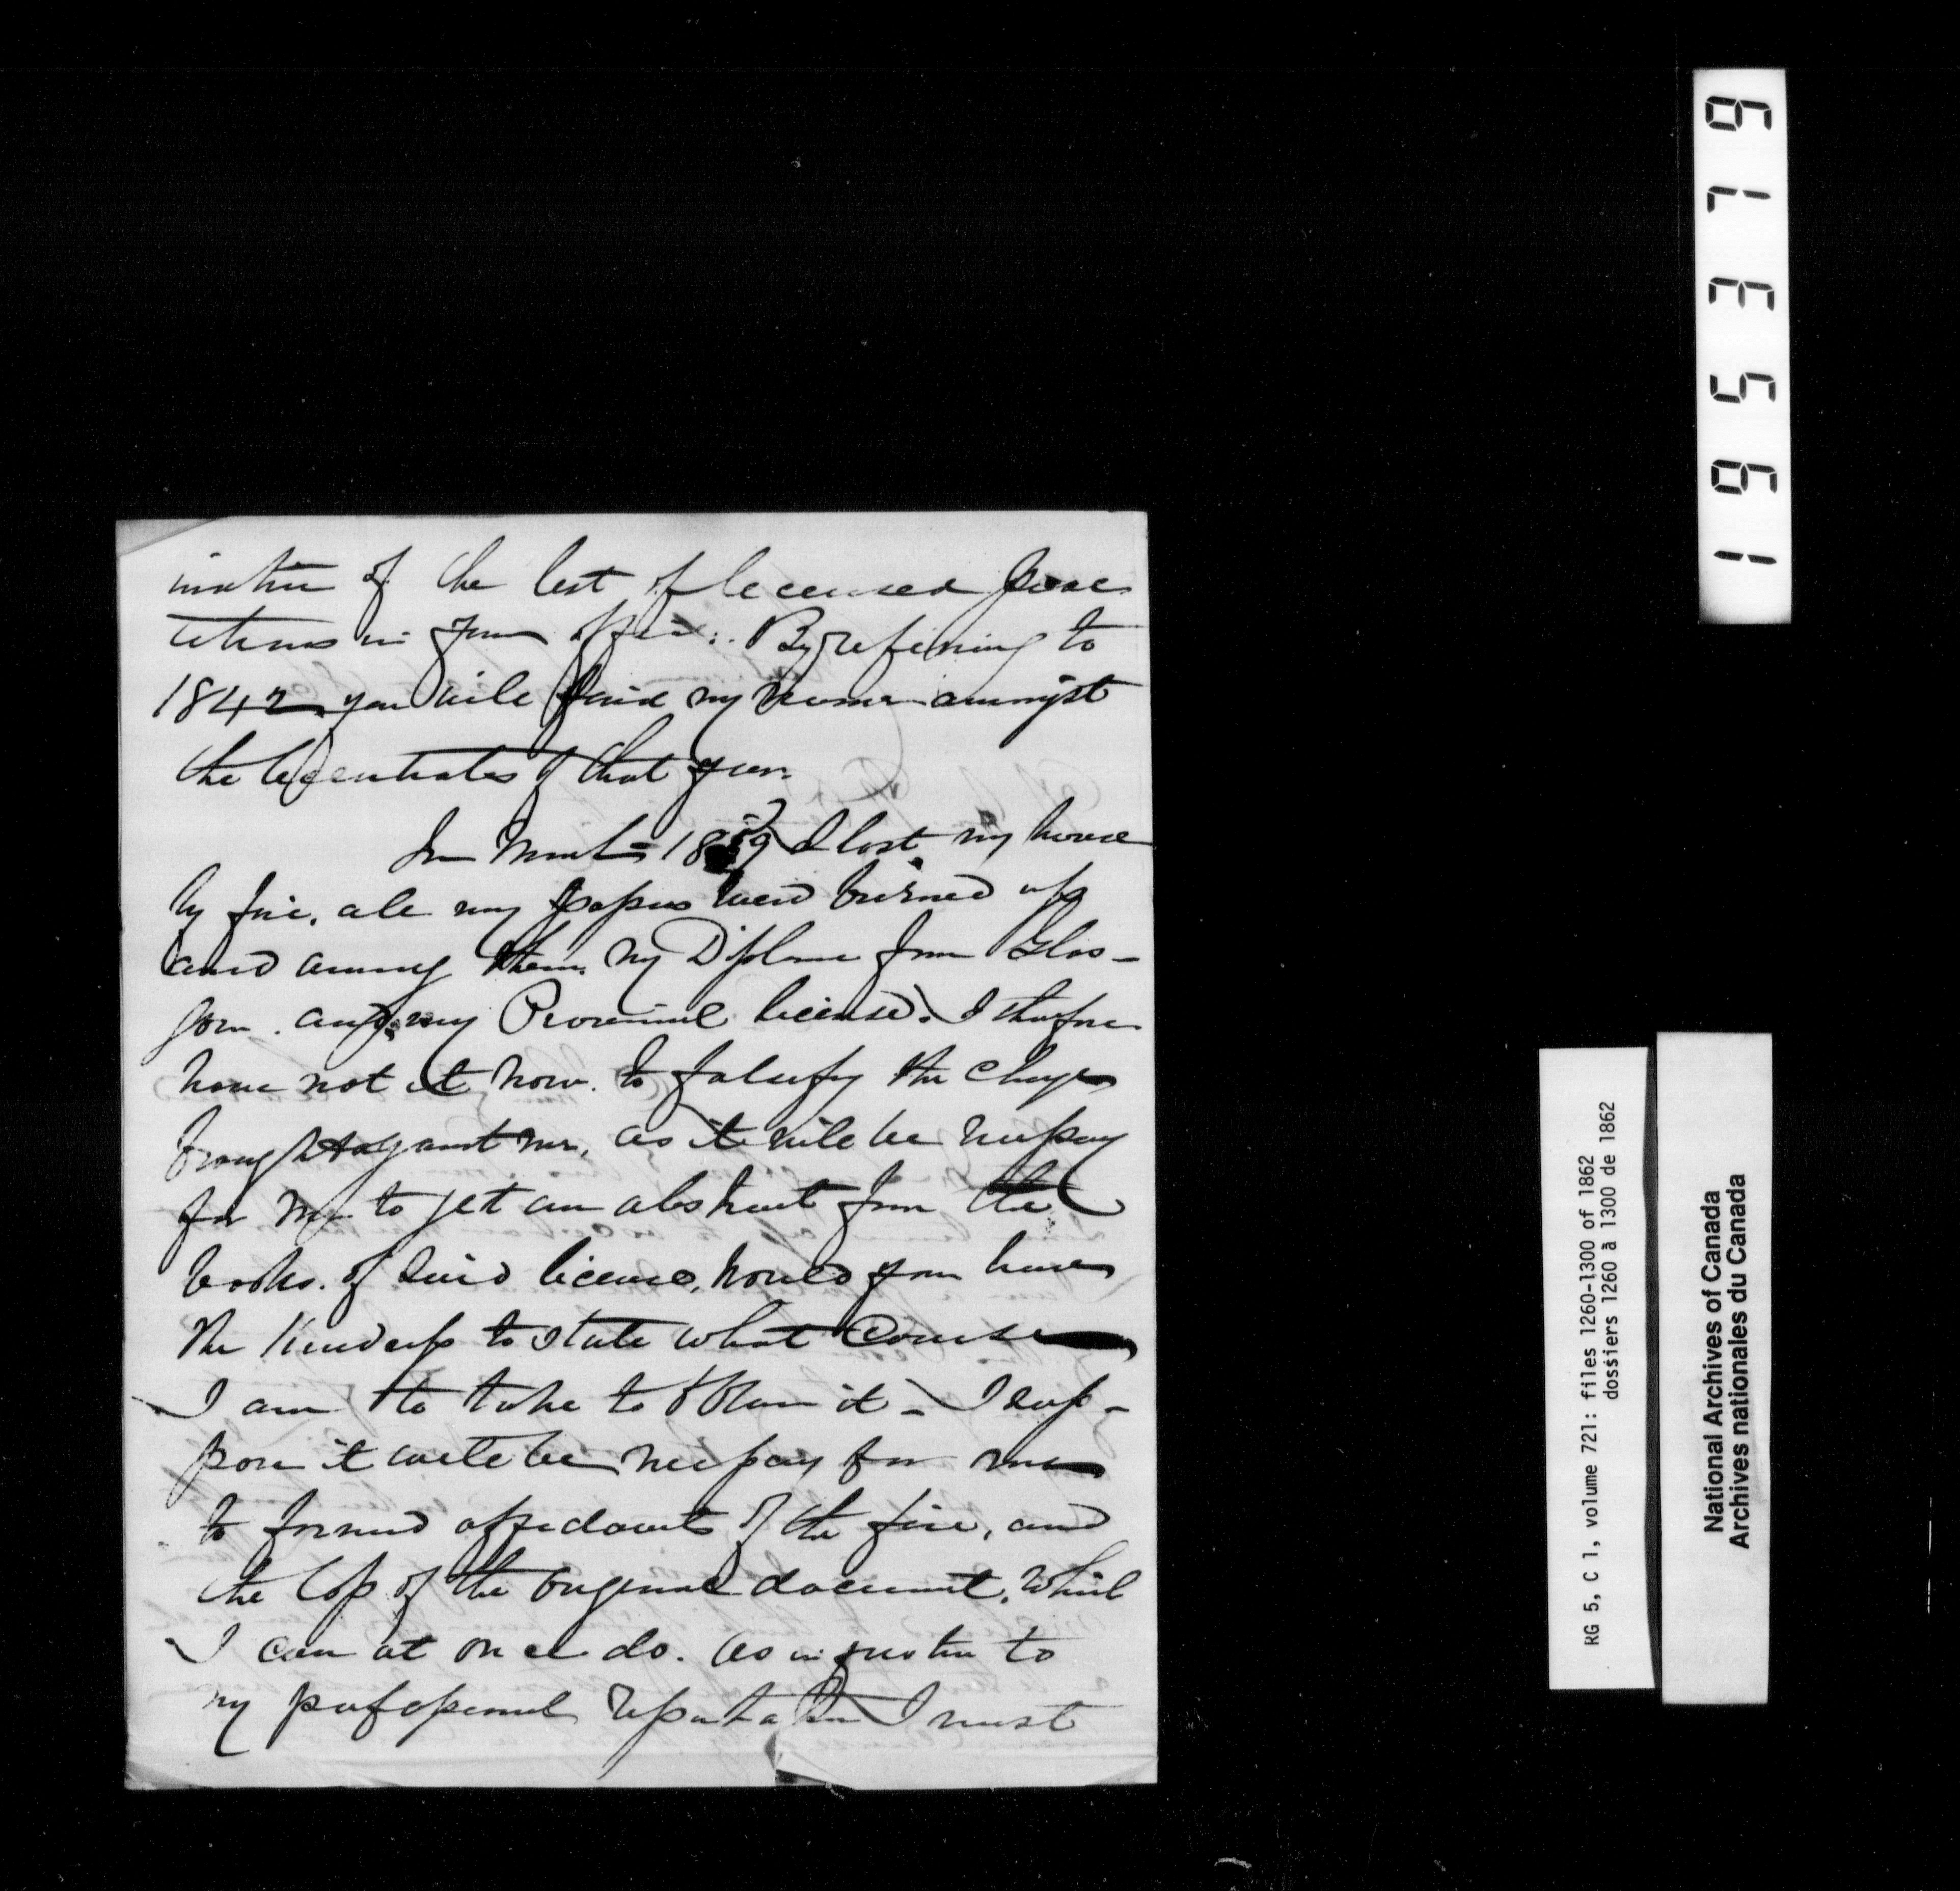 ination of the list of licensed prac
titioners in your office. By refering to
1842 you will find my name amongst
the licentiates of that year.
In March 1859 I lost my house
by fire. all my papers were burned up
and among them my Diploma from Glas-
gow. and my Provincial license. I therefore
have not it now. to falsify the charges
brought against me, as it will be necessary
for me to get an abstract from the
books. of said license, would you have
the kindness to state what course
I am to take to obtain it - I sup-
pose it will be necessary for me
to forward affidavits of the fire, and
the loss of the original document. which
I can at once do. as in justice to
my professional reputation I must
619 3 5 61
RG 5, C 1, volume 721: files 1260-1300 of 1862
dossiers 1260 à 1300 de 1862
National Archives of Canada
Archives nationales du Canada